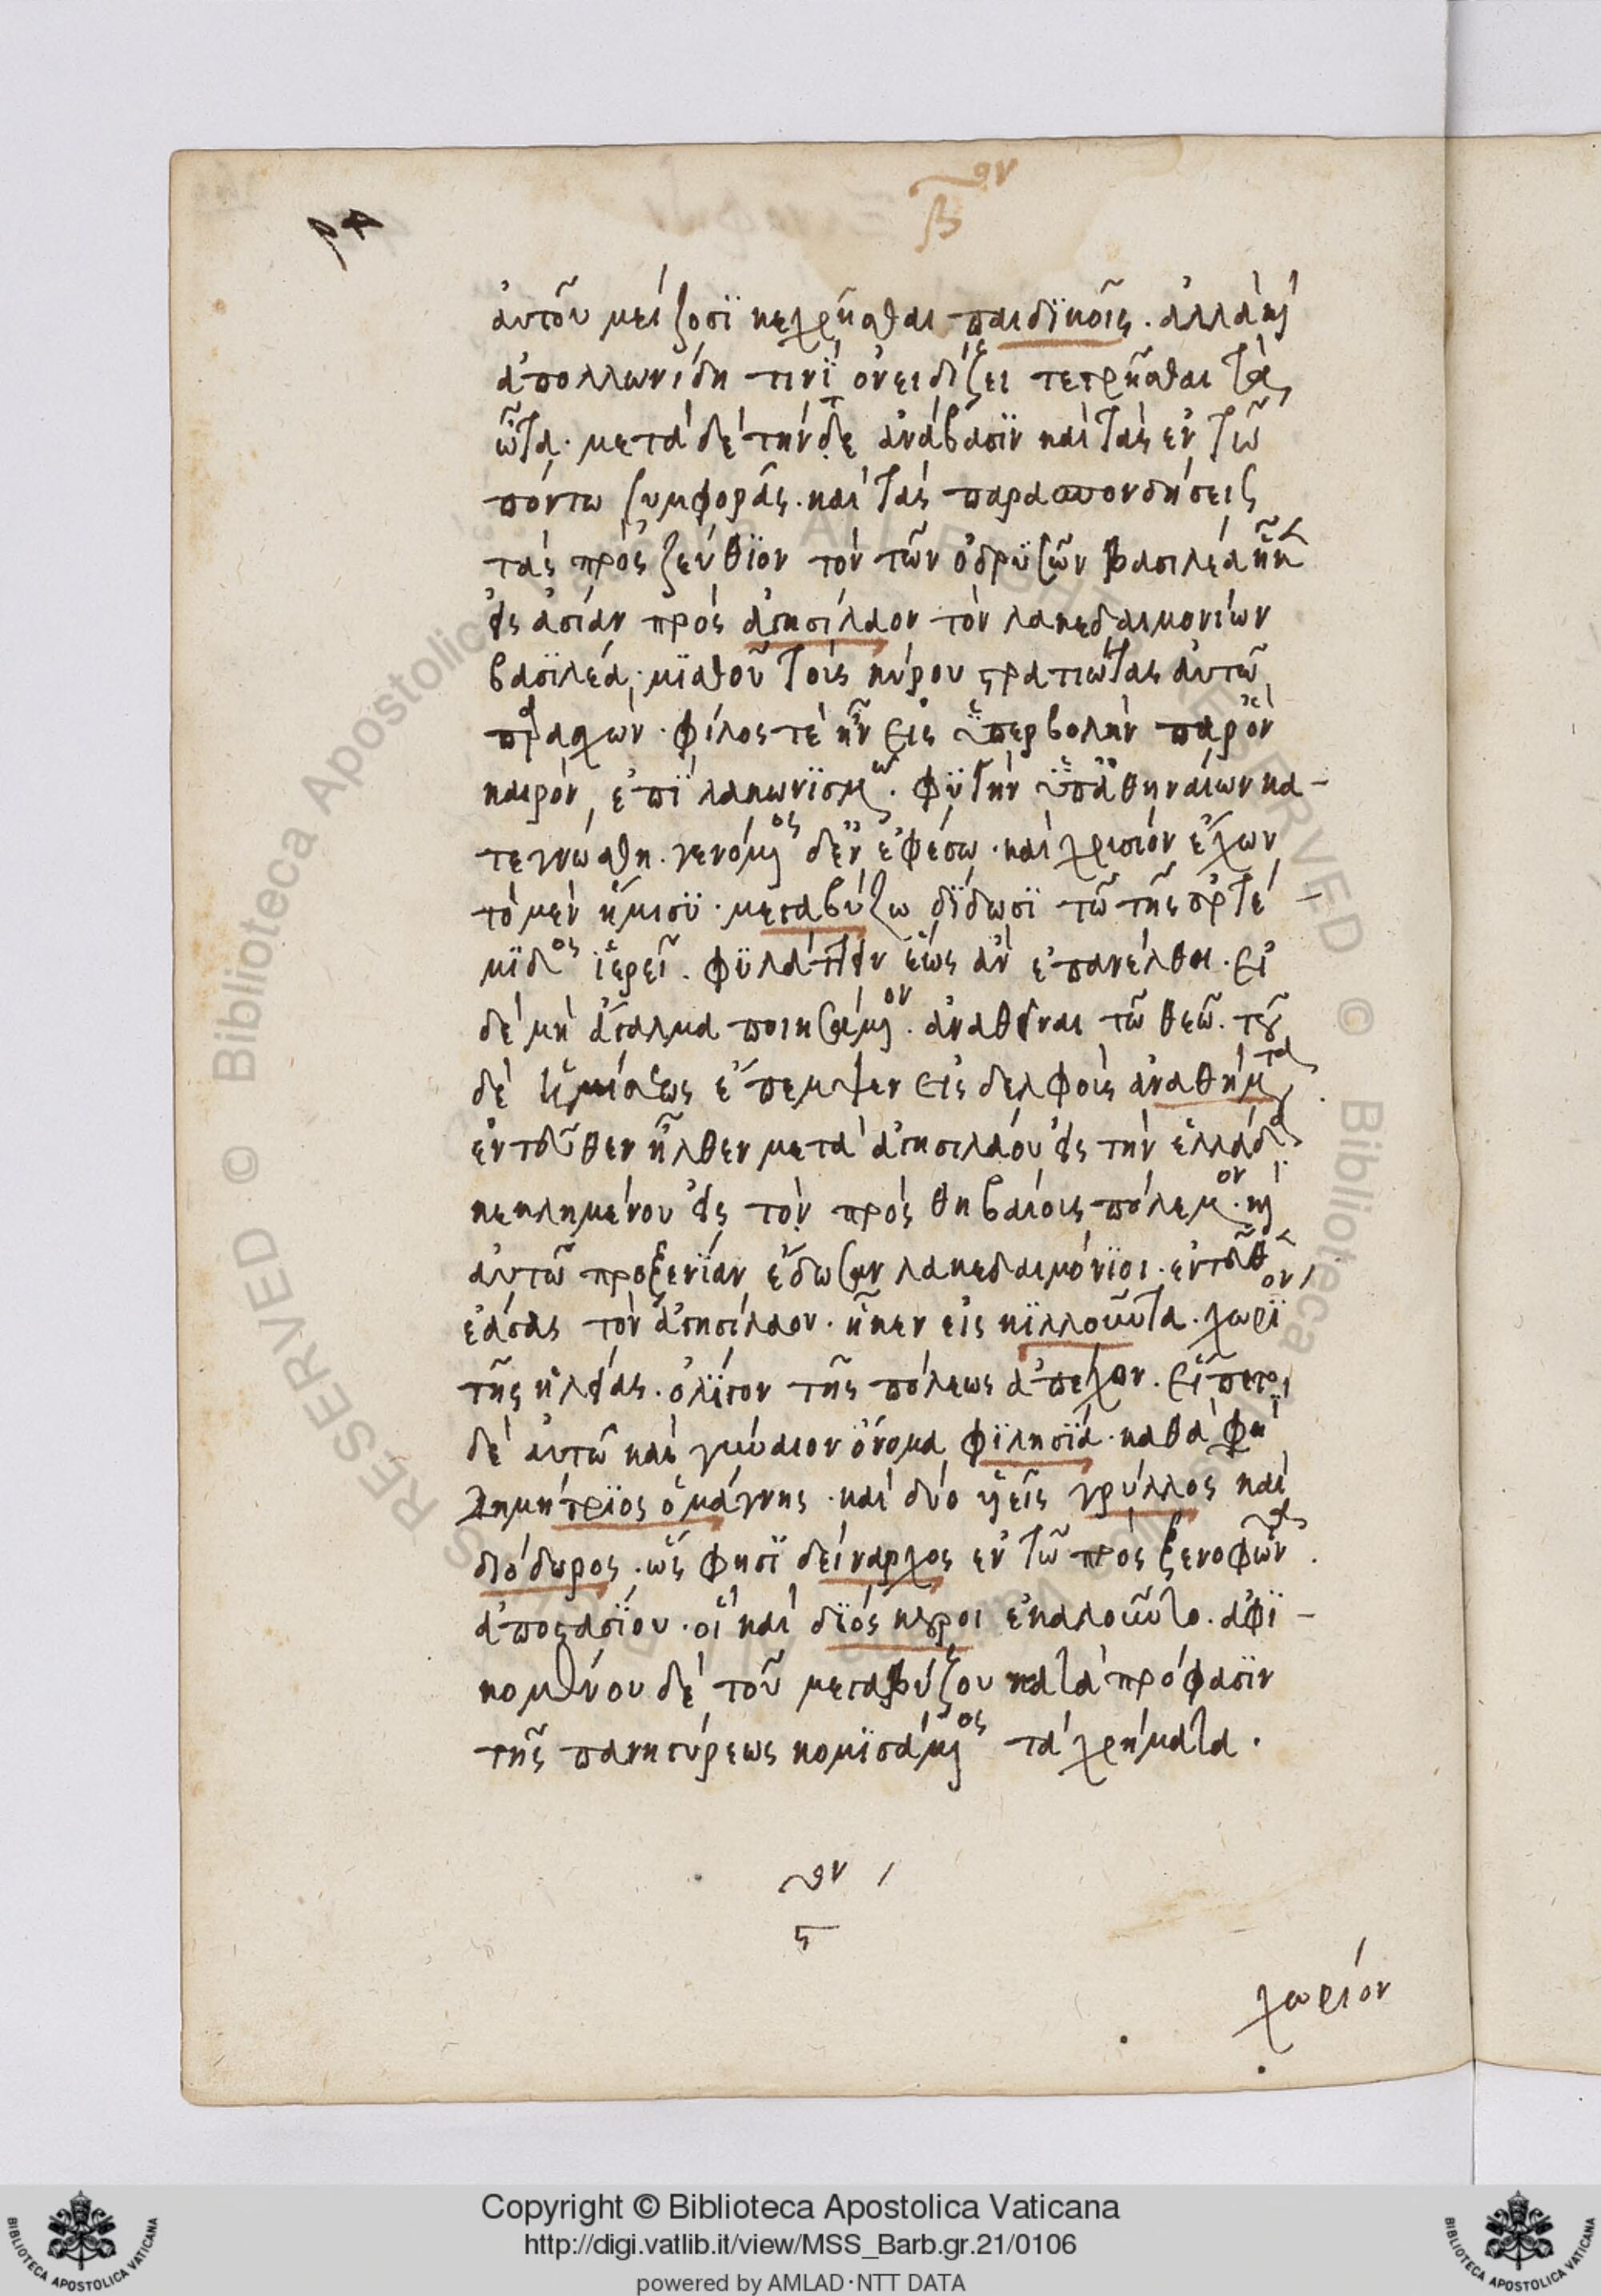 ον
β
ἀυτοῦ μείζοσϊ κεχρῆσθαι παιδϊκοῖς. ἀλλὰ καὶ
ἀπολλωνίδη τινϊ ὀνειδίζει τετρῆσθαι τὰ
ὦτα. μετὰ δὲ τήν δε ἀνάβασϊν καὶ τὰς ἐν τῶ
πόντω συμφορὰς. καὶ τὰς παρασπονδήσεις
τὰς πρὸς ζεύθϊον τὸν τῶν ὀδρϋσῶν βασιλέα ἧκ
εἰς ἀσίαν πρὸς ἀγησίλαον τὸν λακεδαιμονίων
βασϊλέα. μϊσθοῦ τοὺς κύρου στρατιώτας ἀυτῶ
πρασχών. φίλος τὲ ἦν εἰς ὑπερβολὴν παρὸν
καιρὸν ἐπϊ λακωνϊσμῶ. φϋγὴν ὑπ' ἀθηναίων κα-
τεγνώσθη. γενόμενος δ' ἐν ἐφέσω. καὶ χρισίον ἔχων
τὸ μὲν ἥμισϋ. μεγαβύζω δϊδωσϊ τῶ τῆς ἀρτέ-
μϊδος ϊερεῖ. φϋλάττειν ἕως ἀν ἐπανέλθοι. εἰ
δὲ μὴ ἄγαλμα ποιησάμενον. ἀναθεῖναι τῶ θεῶ. τοῦ
δὲ ἡμίσεως ἔπεμψεν εἰς δελφοὺς ἀναθήματα.
ἐντεῦθεν ἦλθεν μετὰ ἀγησιλάου εἰς τὴν ἑλλάδα
κεκλημένου εἰς τὸν πρὸς θηβαίους πόλεμον. καὶ
ἀυτῶ προξενϊαν ἔδωσαν λακεδαιμόνϊοι. ἐντεῦθεν
ἐάσας τὸν ἀγησίλαον. ἧκεν εἰς κϊλλοῦντα. χωρϊον
τῆς ἠλείας. ὀλϊγον τῆς πόλεως ἀπέχον. εἵπετο
δὲ ἀυτῶ καὶ γύναιον ὄνομα φϊλησϊα. καθά φη
δημήτρϊος ὁ μάγνης. καὶ δύο ὑεῖς γρύλλος καὶ
διόδωρος. ὥς φησϊ δείναρχος ἐν τῶ πρὸς ξενοφῶντα.
ἀποστασϊου. οἳ καὶ δϊόσκουροι ἐκαλοῦντο. ἀφϊ-
κομένου δὲ τοῦ μεγαβύζου κατὰ πρόφασϊν
τῆς πανηγύρεως κομϊσάμενος τὰ χρήματα.
ον
ς
χωρίον
Copyright © Biblioteca Apostolica Vaticana
http://digi.vatlib.it/view/MSS_Barb.gr.21/0106
powered by AMLAD·NTT DATA